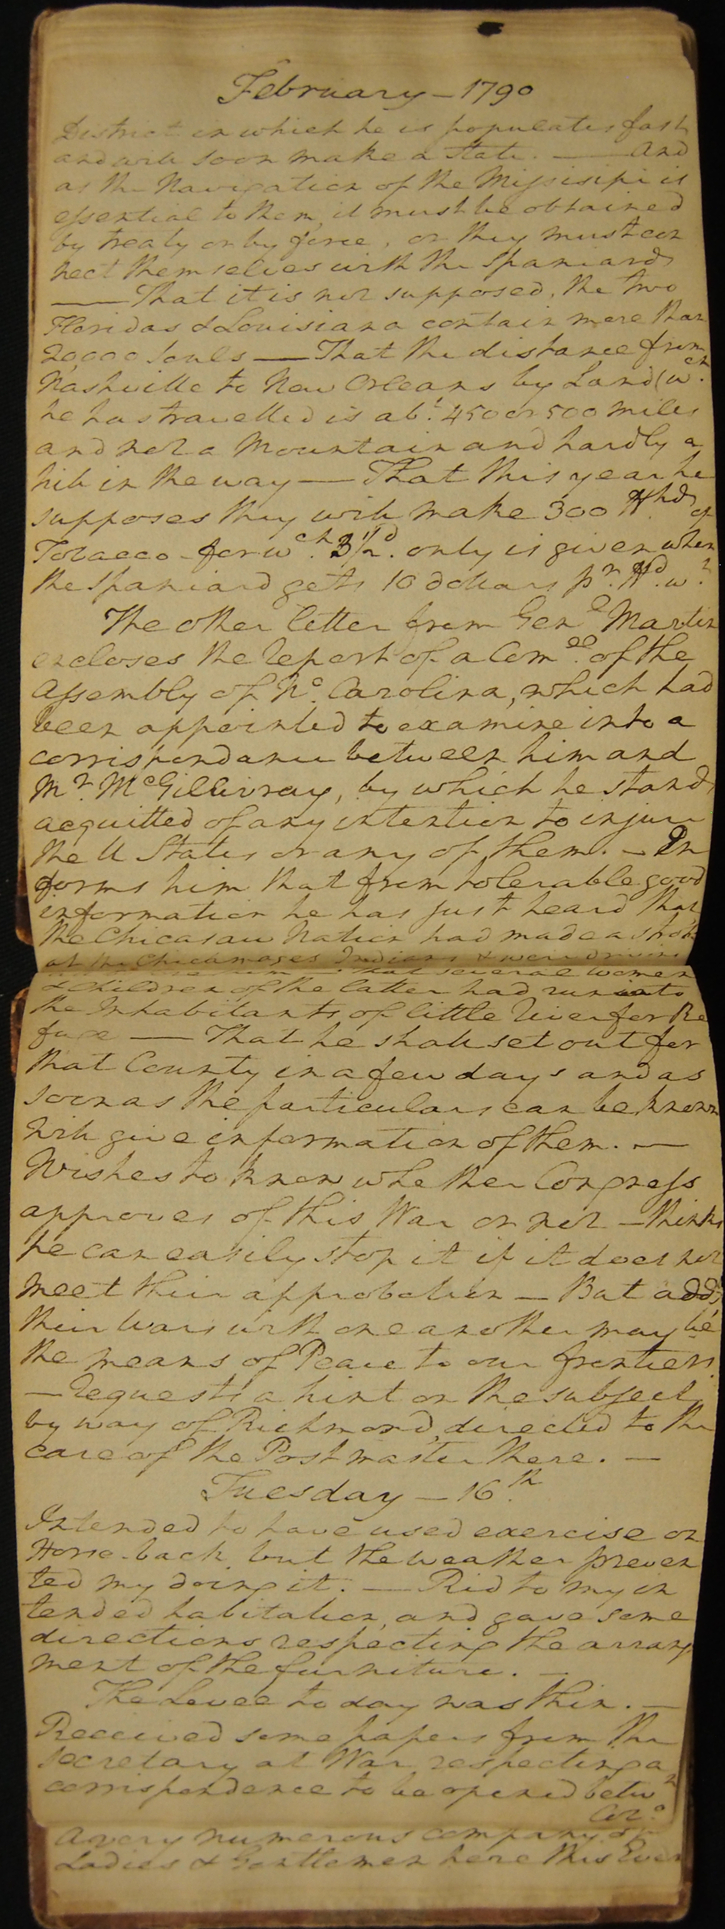 February — 1790
District in which he is populates fast
and will soon make a State. — And
as the Navigation of the Mississipi is
essential to them, it must be obtained
by treaty or by force, or they must con
nect themselves with the Spaniards
— That it is not supposed, the two
Floridas & Louisiana contain more than
20,000 Souls — That the distance from
Nashville to New Orleans by Land (wch.
he has travelled is abt. 450 or 500 miles
and not a Mountain and hardly a
hill in the way — That this year he
supposes they will make 300 Hhds. of
Tobacco - for wch. 3 1/2d. only is given when
the Spaniard gets 10 dollars pr. Hd. wt.
The other letter from Genl. Martin
encloses the report of a Comee. of the
Assembly of No. Carolina, which had
been appointed to examine into a
corrispondance between him and
Mr. McGillivray, by which he stands
acquitted of any intention to injure
the U States or any of them. — In
forms him that from tolerable good
information he has just heard that
the Chicasaw Nation had made a stroke
at the Chicamages Indians & were driving
them — that several women
& children of the latter had run into
the Inhabitants of little River for Re
fuge — That he shall set out for
that County in a few days and as
soon as the particulars can be known
will give information of them. —
Wishes to know whether Congress
approves of this War or not — thinks
he can easily stop it if it does not
meet their approbation — But adds,
their Wars with one another may be
the means of Peace to our frontiers
— requests a hint on the subject
by way of Richmond, directed to the
care of the Postmaster there. —
Tuesday — 16th.
Intended to have used exercise on
Horse-back but the weather preven
ted my doing it. — Rid to my in
tended habitation, and gave some
directions respecting the arrang
ment of the furniture. —
The Levee to day was thin. —
Received some papers from the
Secretary at War respecting a
corrispondence to be opened betwn
Colo.
A very numerous company of
Ladies & Gentlemen here this Even